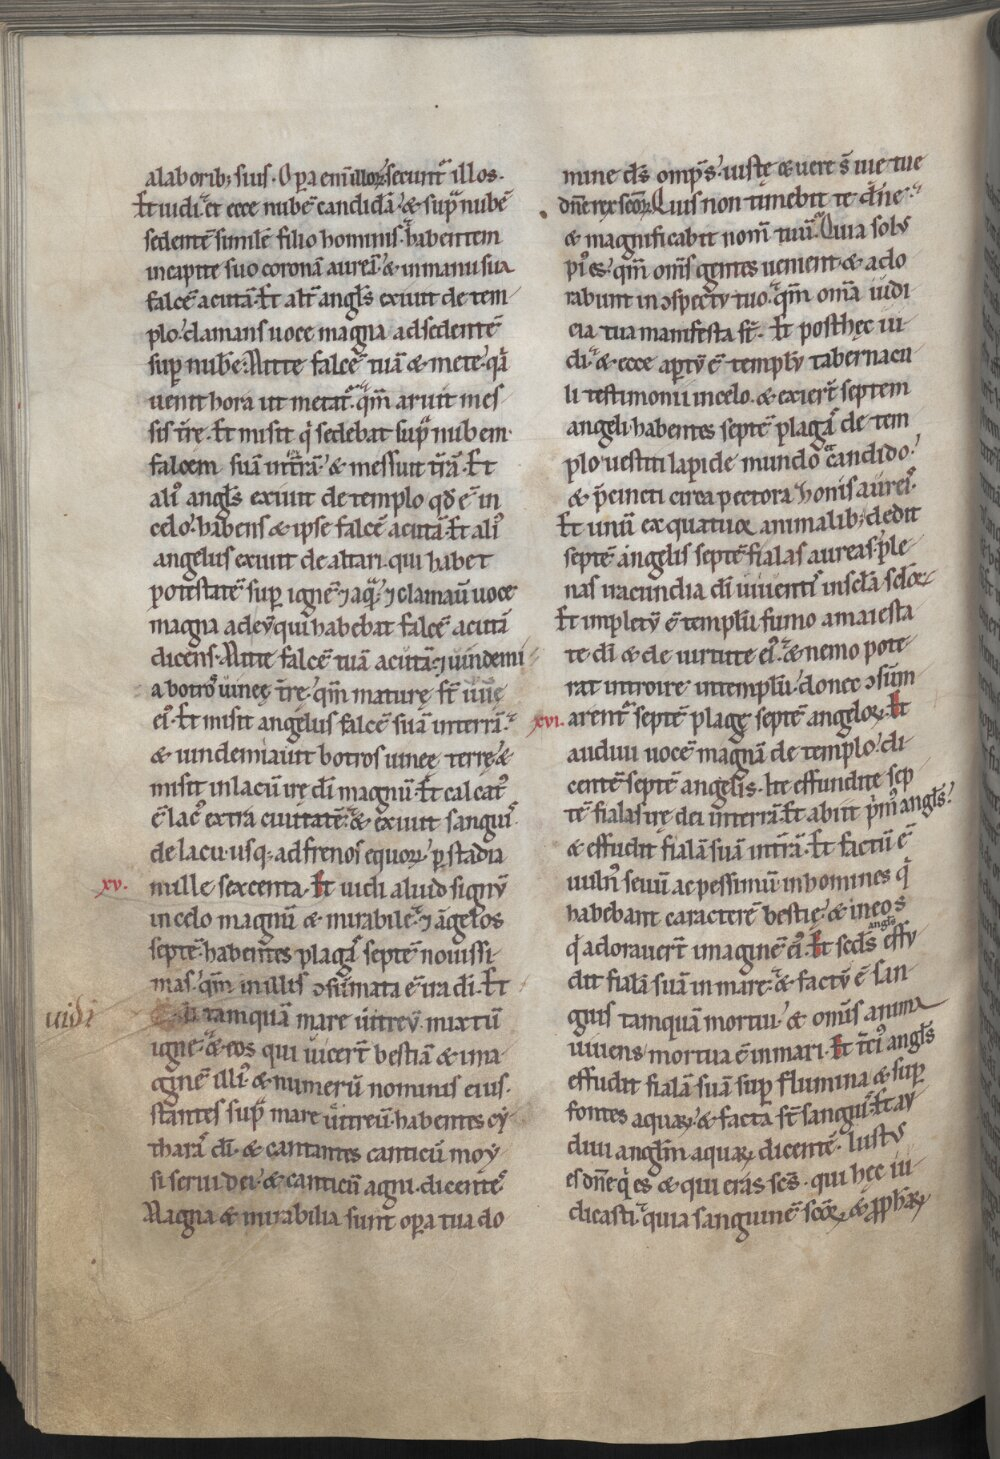 alaborib; suis. Opa eni illoꝝ secunt illos.
Et uidi et ecce nubē candidā & sup nubē
sedentē similē filio hominis habentem
incapite suo coronā aureā & inmanu sua
falcē acutā. Et alt angls exiuit de tem
plo clamans uoce magna adsedentē
sup nubē. Mitte falcē tuā & mete qa
uenit hora ut metat qm aruit mes
sis tre. Et misit q sedebat sup nubem
falcem suā intrā & messuit trā. Et
ali angls exiuit de templo qd ē in
celo habens & ipse falcē acutā. Et ali
angelus exiuit de altari qui habet
potestatē sup ignē ⁊ aq ⁊ clamau uoce
magna adeu qui habebat falcē acutā
dicens. Mitte falcē tuā acutā ⁊ uindemi
a botros uineę tre qm mature st uue
ei. Et misit angelus falcē suā interrā
& uindemiauit botros uinee terrę &
misit inlacū ire di magnū. Et calcat
ē lac extra ciuitatē & exiuit sangui
de lacu usq; adfrenos equoꝝ p stadia
xv. mille sexcenta. Et uidi aliud signu
incelo magnū & mirabile ⁊ angelos
septē habentes plaga septē nouissi
mas qm inillis ↄsūmata ē ira di. Et
uidi tamquā mare uitreu mixtū
igne & eos qui uicert bestiā & ima
ginē illi & numerū nominis eius
stantes sup mare uitreū habentes cy
thara di & cantantes canticū moy
si serui dei & canticū agni dicente
Magna & mirabilia sunt opa tua do
mine ds omps iustę & uere s uie tue
dne rex scoꝝ. Quis non timebit te dne
& magnificabit nom tuū. Quia solus
pi es qm oms gentes uenient & ado
rabunt inↄspectu tuo qm oma iudi
cia tua manifesta st. Et posthęc ui
di & ecce aptu ē templu tabernacu
li testimonii incelo & exiert septem
angeli habentes septē plaga de tem
plo uestiti lapide mundo candido
& pcincti circa pectora zonis aurei
Et unū ex quatuor animalib; dedit
septē angelis septē fialas aureas ple
nas iracundia di uiuenti inscla scloꝝ
Et impletu ē templū fumo amaiesta
te di & de uirtute ei & nemo pote
rat introire intemplū donec ↄsūm
xvi. arent septē plagę septē angeloꝝ. Et
audiui uocē magnā de templo di
centē septē angelis. Ite effundite sep
tē fialas irę dei interrā. Et abiit pim angls
& effudit fialā suā intrā. Et factū ē
uuln seuū ac pessimū inhomines q
habebant caracterē bestię & ineos
q adorauert imaginē ei. Et secds angls effu
dit fialā suā in mare & factu ē san
guis tamquā mortui & omis anima
uiuens mortua ē inmari. Et tci angls
effudit fialā suā sup flumina & sup
fontes aquaꝝ & facta st sangui. Et au
diui anglm aquaꝝ dicentē. Iustus
es dne q es & qui eras scs qui hec iu
dicasti quia sanguinē scoꝝ & pphaꝝ